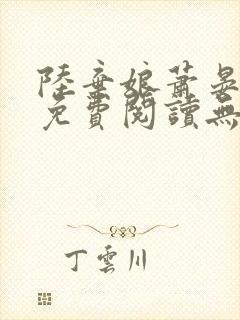 陸棄娘蕭晏
免費閱讀無
丁雲川